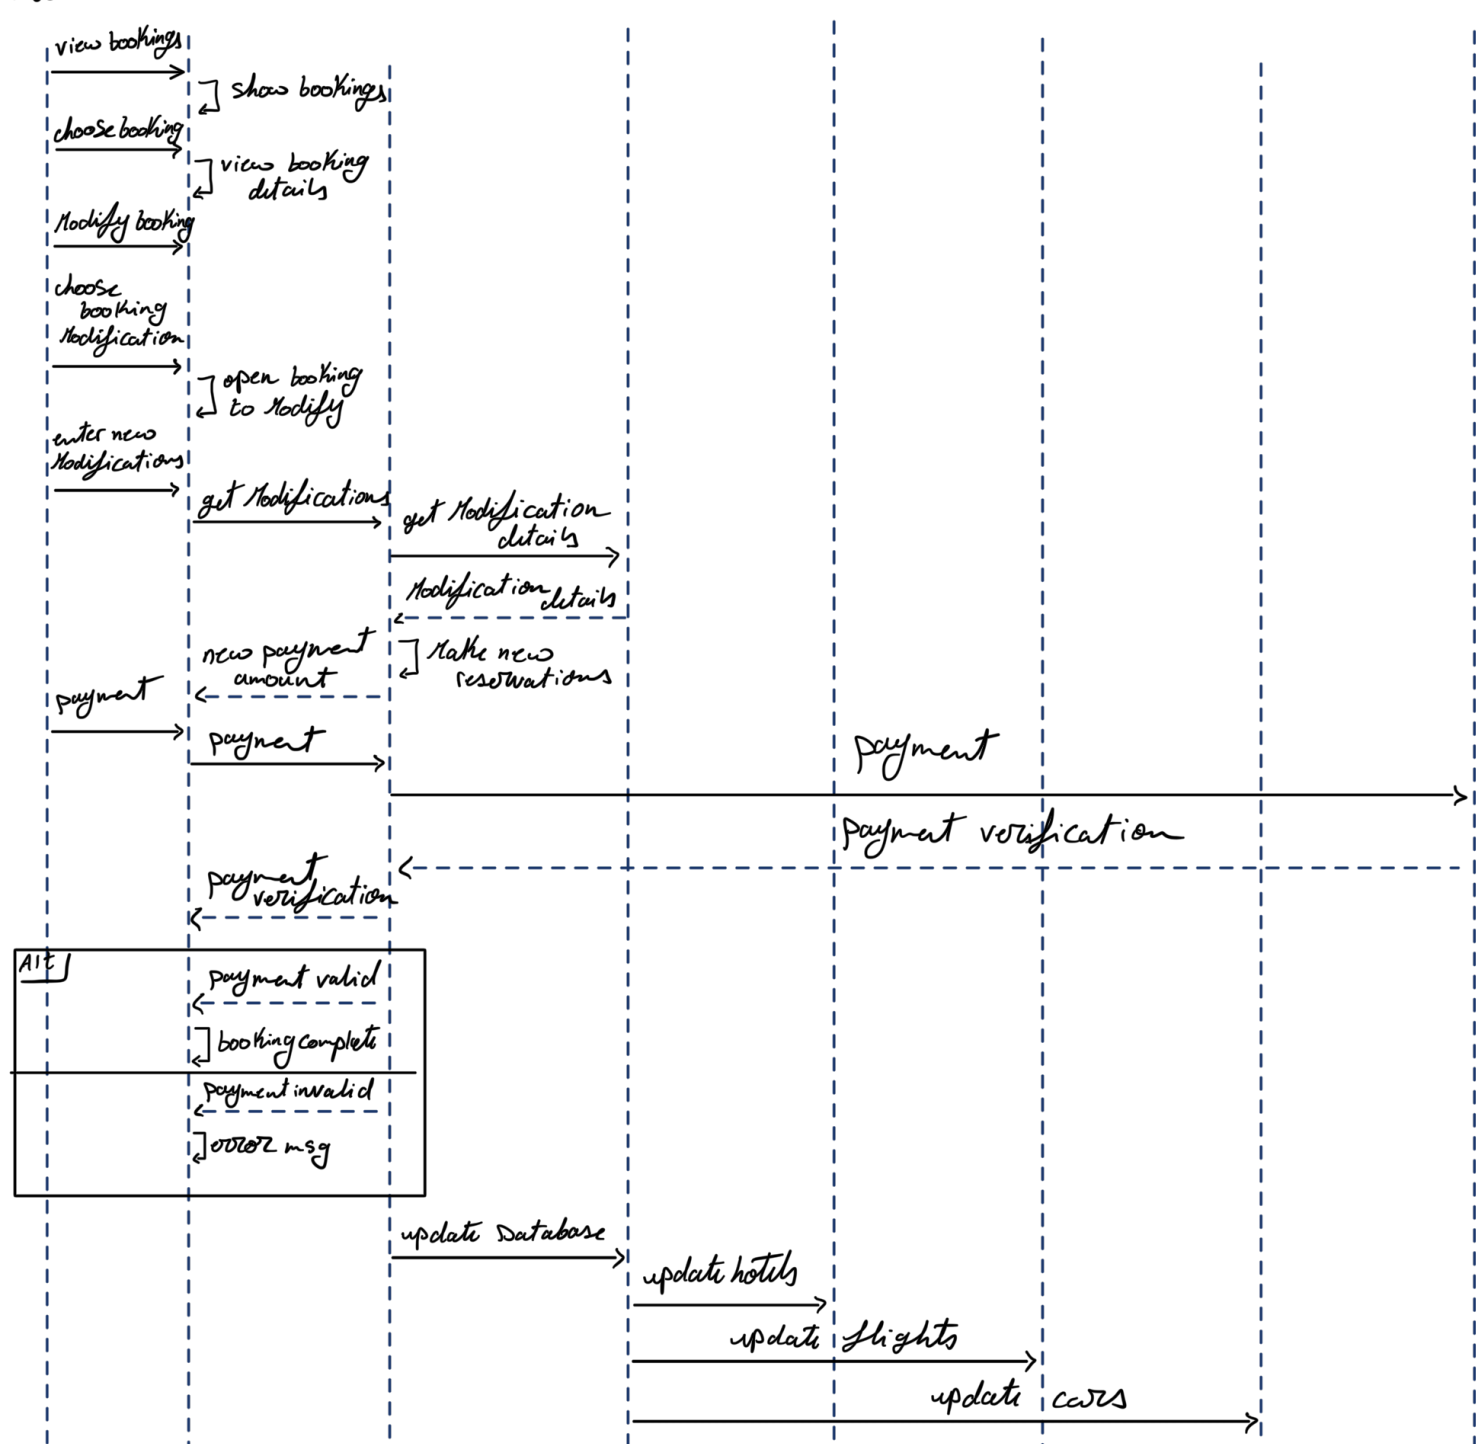 view bookings
show bookings
choose booking
view booking
details
Modify booking
choose
booking
Modification
open booking
to Modify
enter new
Modifications
get Modifications
get Modification
details
Modification details
Make new
reservations
new payment
amount
payment
payment
payment
payment verification
payment
verification
Alt
payment valid
booking complete
payment invalid
error msg
update Database
update hotels
update flights
update cars